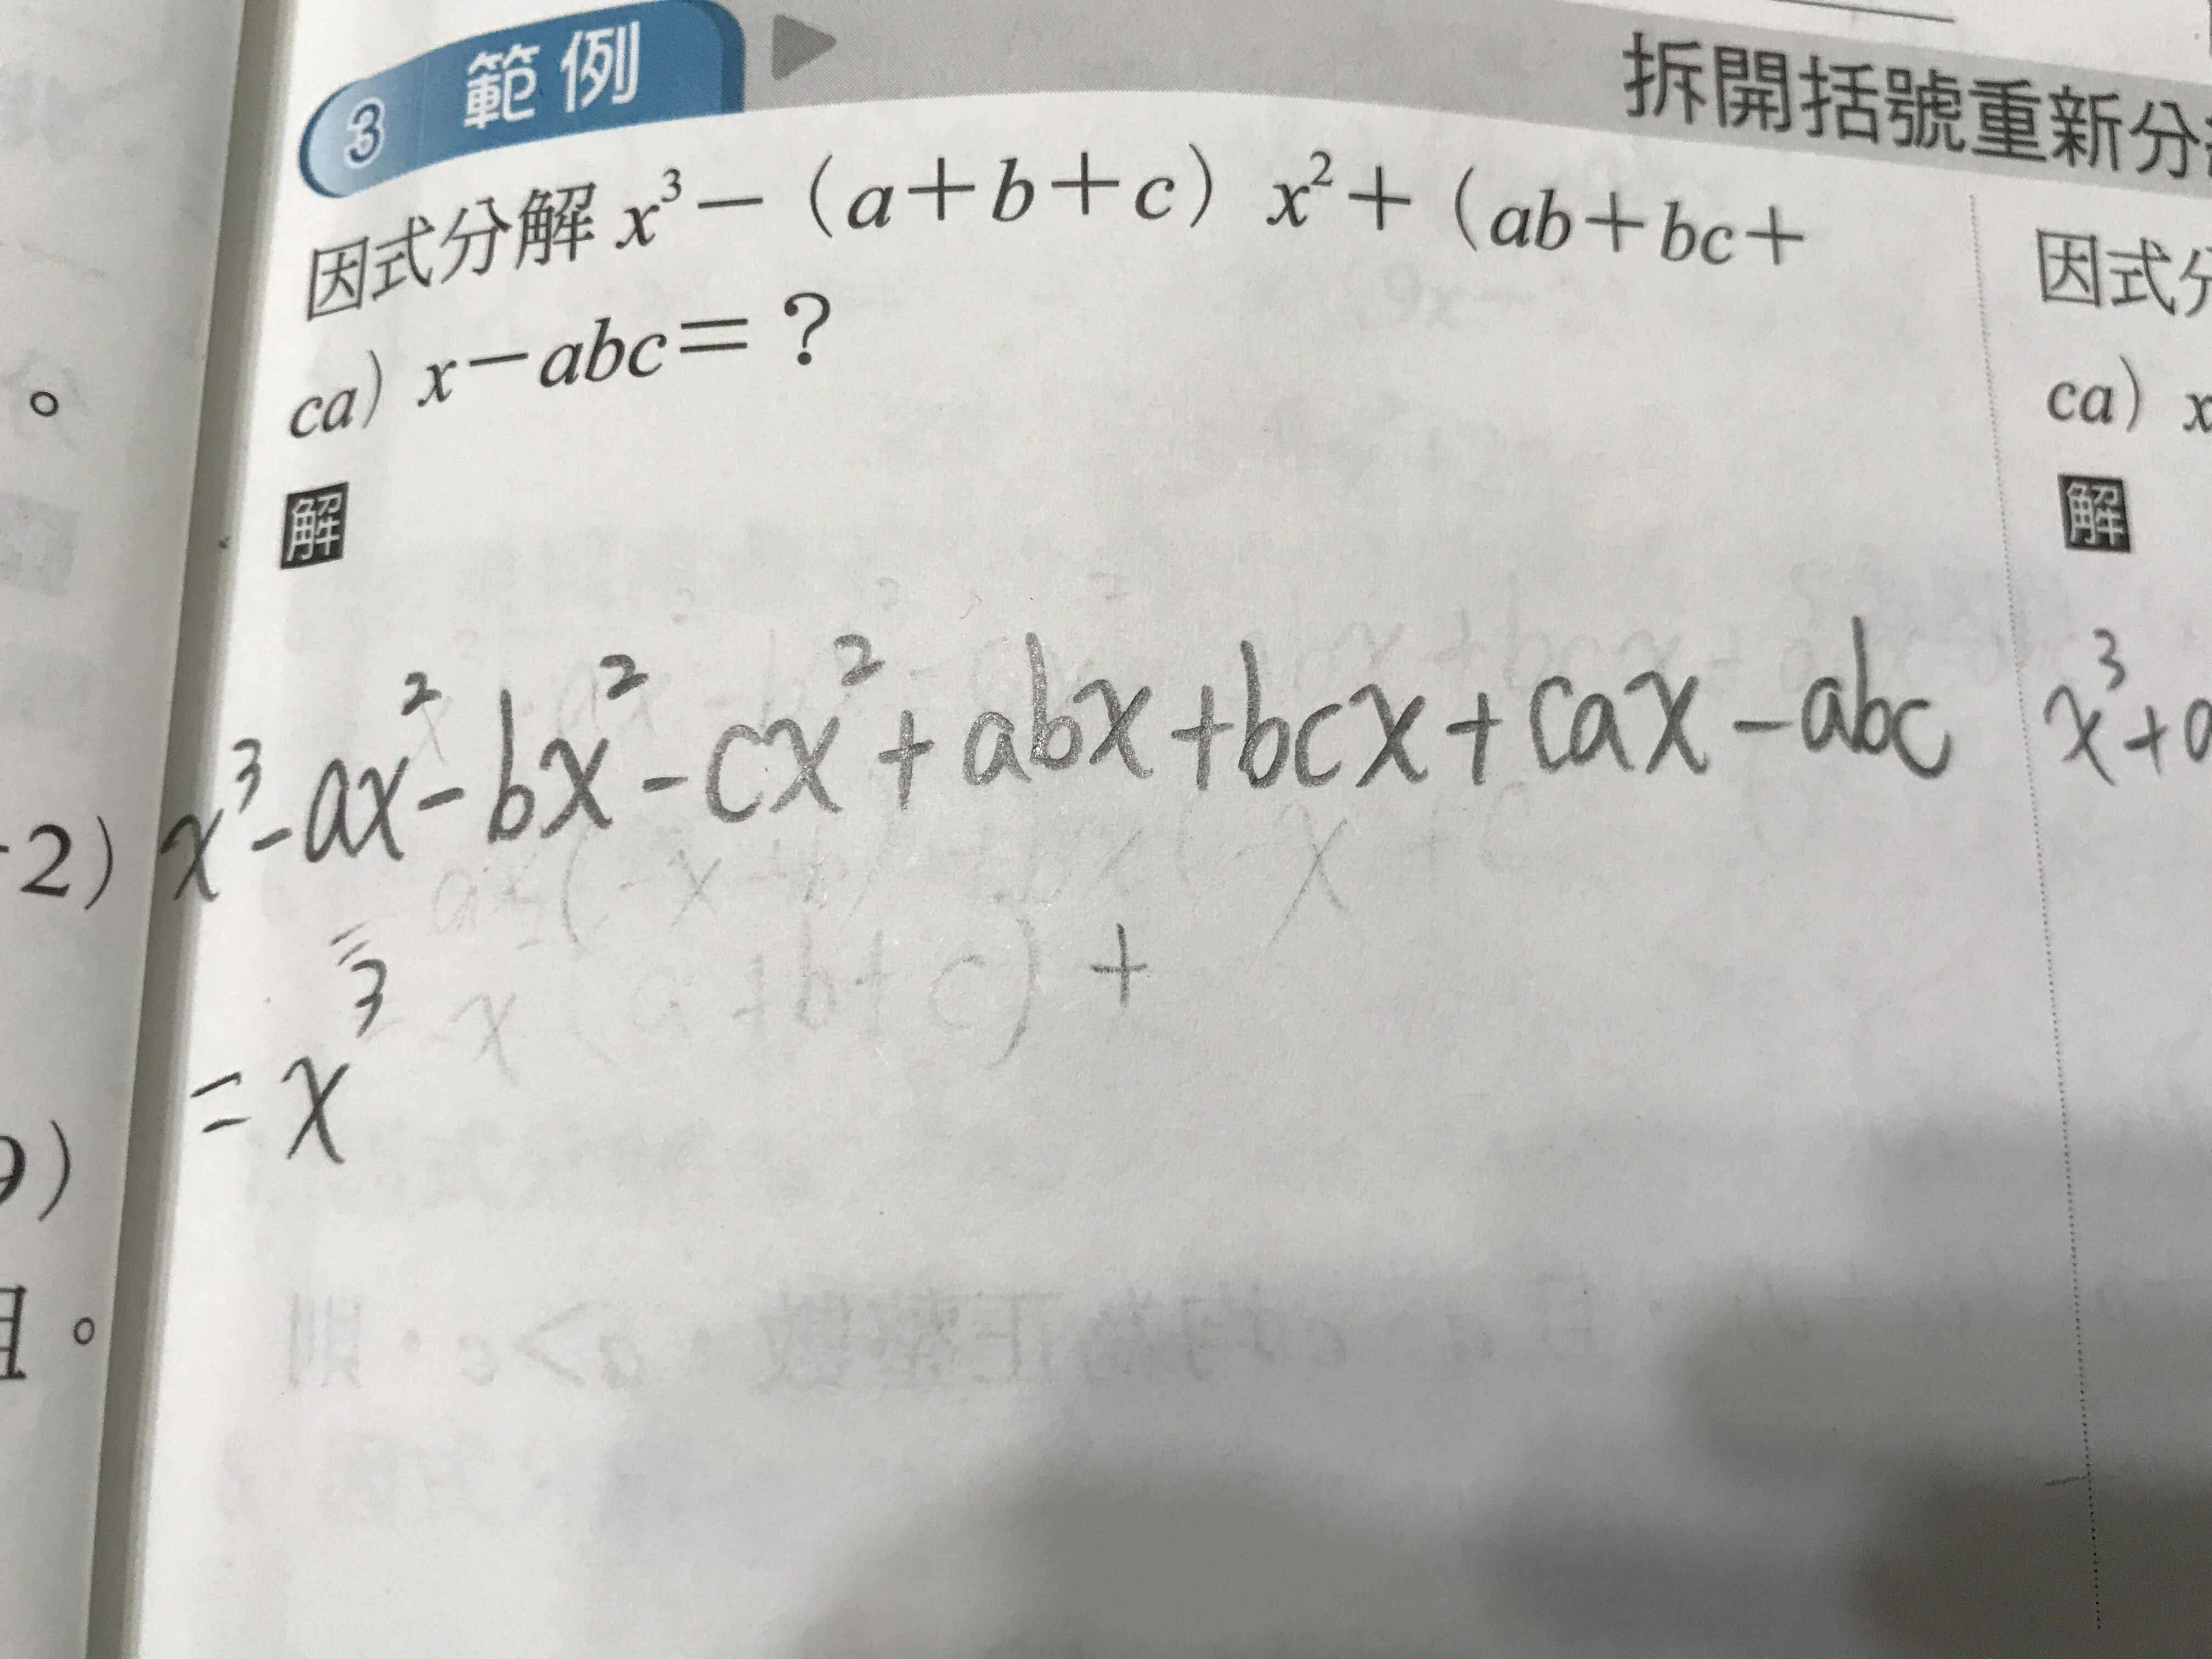 3 範例
拆開括號重新分
因式分解 x³－（a＋b＋c）x²＋（ab＋bc＋
ca）x－abc＝？
解
x³-ax²-bx²-cx²+abx+bcx+cax-abc
= x³
+
因式分
ca）x
解
x³+a
。
2)
9)
組。